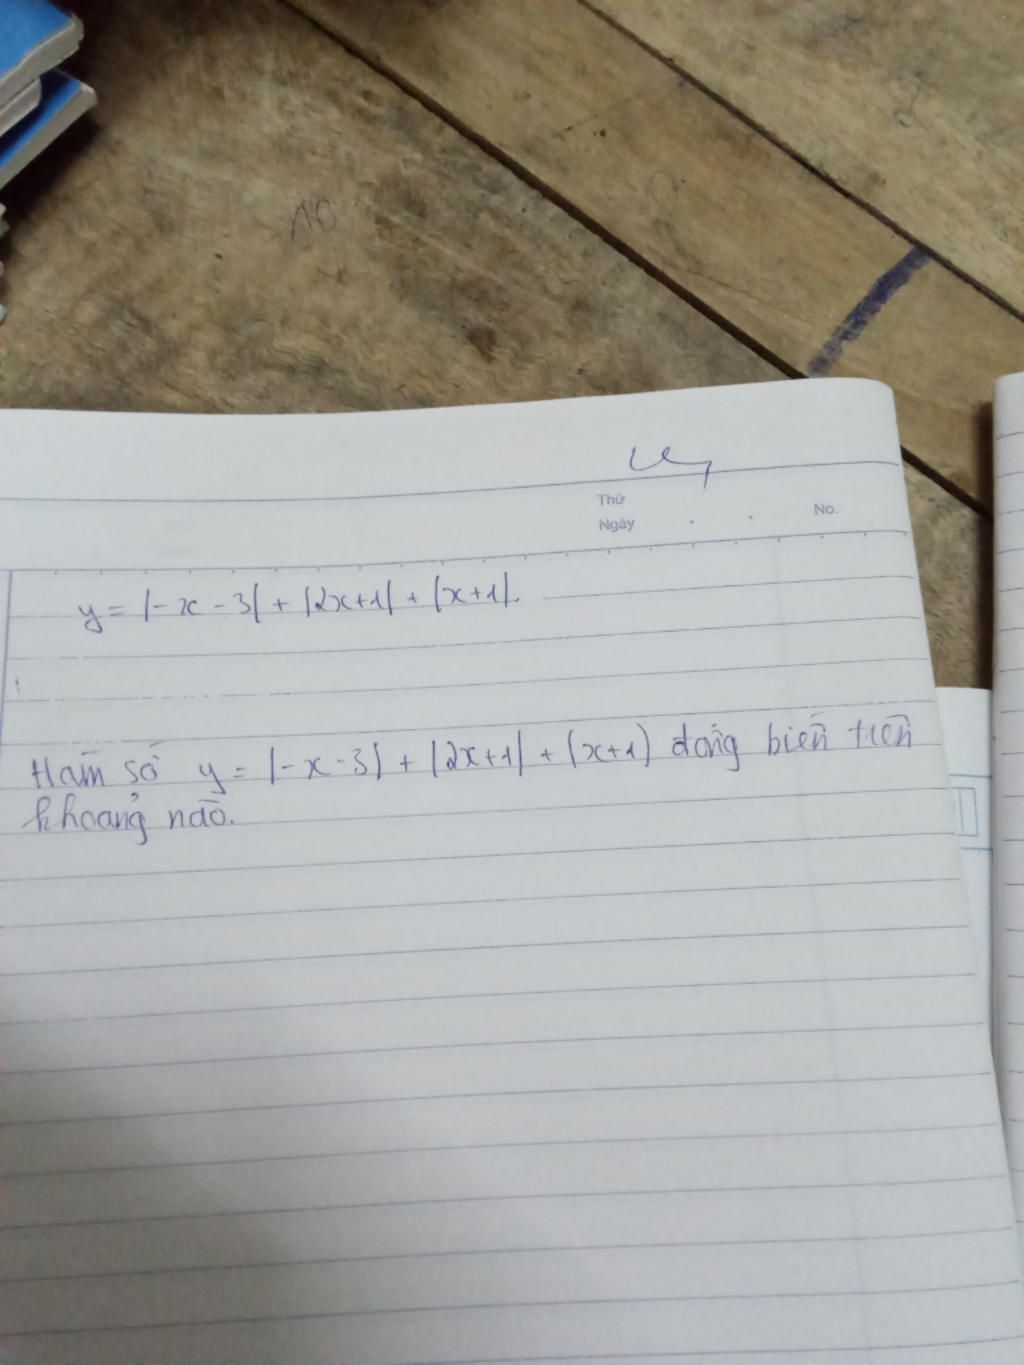 Thứ
Ngày
No.
y = |-x - 3| + |2x+1| + |x+1|.
Hàm số y = |-x-3| + |2x+1| + |x+1| đồng biến trên
khoảng nào.